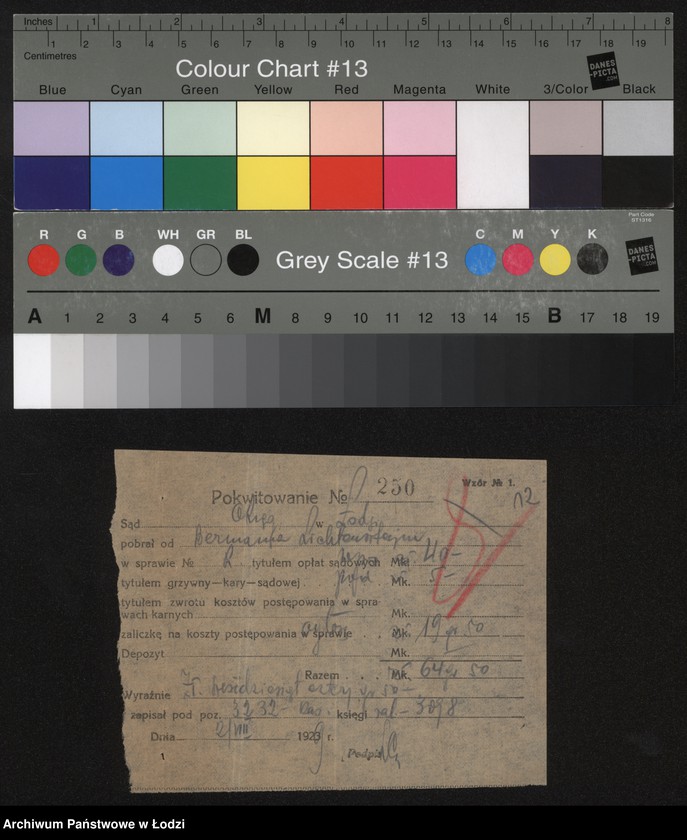 Inches 1 2 3 4 5 6 7 8
Centimetres 1 2 3 4 5 6 7 8 9 10 11 12 13 14 15 16 17 18 19
Colour Chart #13
DANES-PICTA.COM
Blue Cyan Green Yellow Red Magenta White 3/Color Black
Part Code ST1316
R G B WH GR BL Grey Scale #13 C M Y K
DANES-PICTA.COM
A 1 2 3 4 5 6 M 8 9 10 11 12 13 14 15 B 17 18 19
Wzór № 1.
Pokwitowanie № 250
12
Sąd Okręg w Łodzi
pobrał od Bermanna Lichtensteina
w sprawie № tytułem opłat sądowych Mk. 40-
tytułem grzywny—kary—sądowej Mk. 5-
tytułem zwrotu kosztów postępowania w spra-
wach karnych Mk.
zaliczkę na koszty postępowania w sprawie Mk. 19 gr 50
Depozyt Mk.
Razem Mk. 64 gr 50
Wyraźnie Zł. sześćdziesiąt cztery gr 50-
zapisał pod poz. 3232- księgi 3098
Dnia 2/VIII 1929 r.
1 Podpis
Archiwum Państwowe w Łodzi